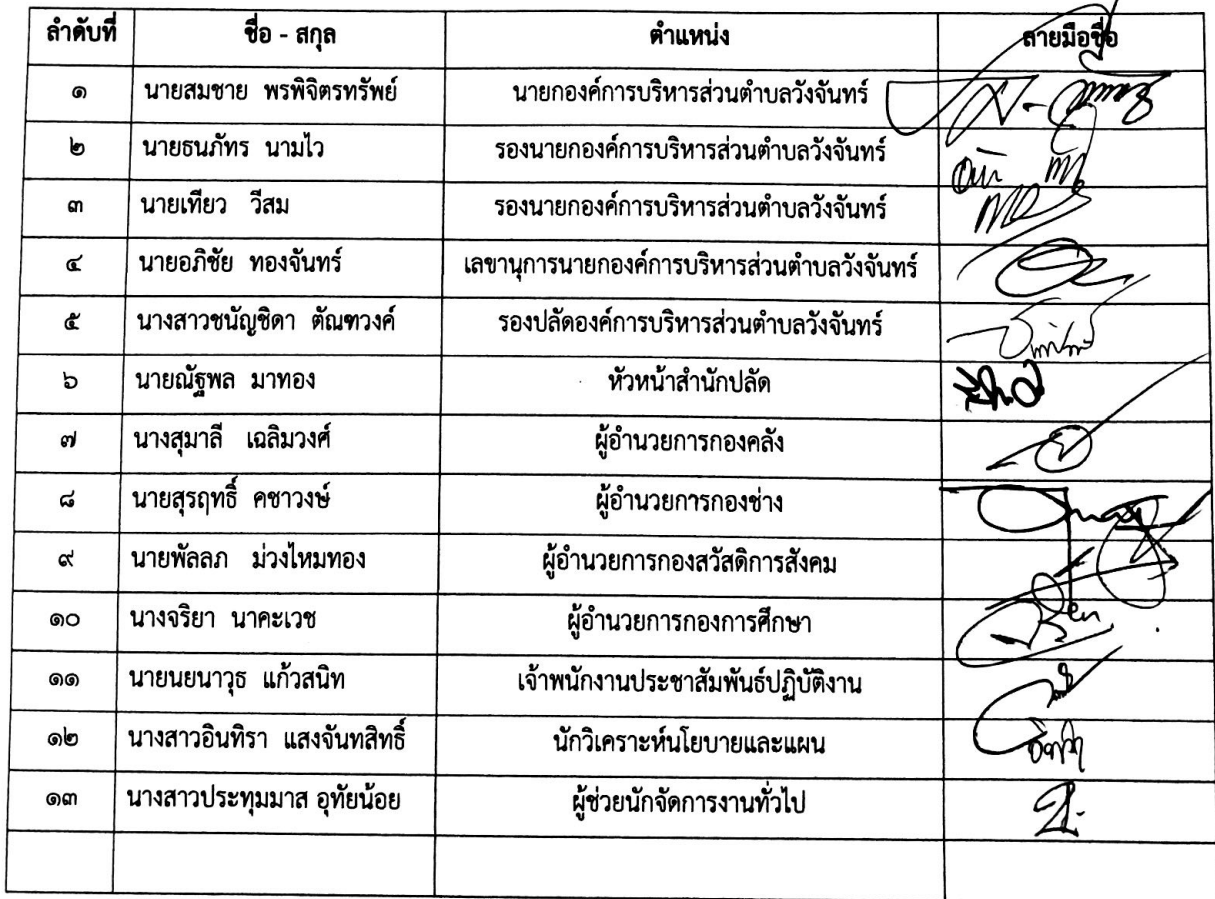 ลำดับที่ ชื่อ - สกุล ตำแหน่ง ลายมือชื่อ
๑ นายสมชาย พรพิจิตรทรัพย์ นายกองค์การบริหารส่วนตำบลวังจันทร์
๒ นายธนภัทร นามไว รองนายกองค์การบริหารส่วนตำบลวังจันทร์
๓ นายเทียว วีสม รองนายกองค์การบริหารส่วนตำบลวังจันทร์
๔ นายอภิชัย ทองจันทร์ เลขานุการนายกองค์การบริหารส่วนตำบลวังจันทร์
๕ นางสาวชนัญชิดา ตัณฑวงค์ รองปลัดองค์การบริหารส่วนตำบลวังจันทร์
๖ นายณัฐพล มาทอง หัวหน้าสำนักปลัด
๗ นางสุมาลี เฉลิมวงศ์ ผู้อำนวยการกองคลัง
๘ นายสุรฤทธิ์ คชาวงษ์ ผู้อำนวยการกองช่าง
๙ นายพัลลภ ม่วงไหมทอง ผู้อำนวยการกองสวัสดิการสังคม
๑๐ นางจริยา นาคะเวช ผู้อำนวยการกองการศึกษา
๑๑ นายนยนาวุธ แก้วสนิท เจ้าพนักงานประชาสัมพันธ์ปฏิบัติงาน
๑๒ นางสาวอินทิรา แสงจันทสิทธิ์ นักวิเคราะห์นโยบายและแผน
๑๓ นางสาวประทุมมาส อุทัยน้อย ผู้ช่วยนักจัดการงานทั่วไป